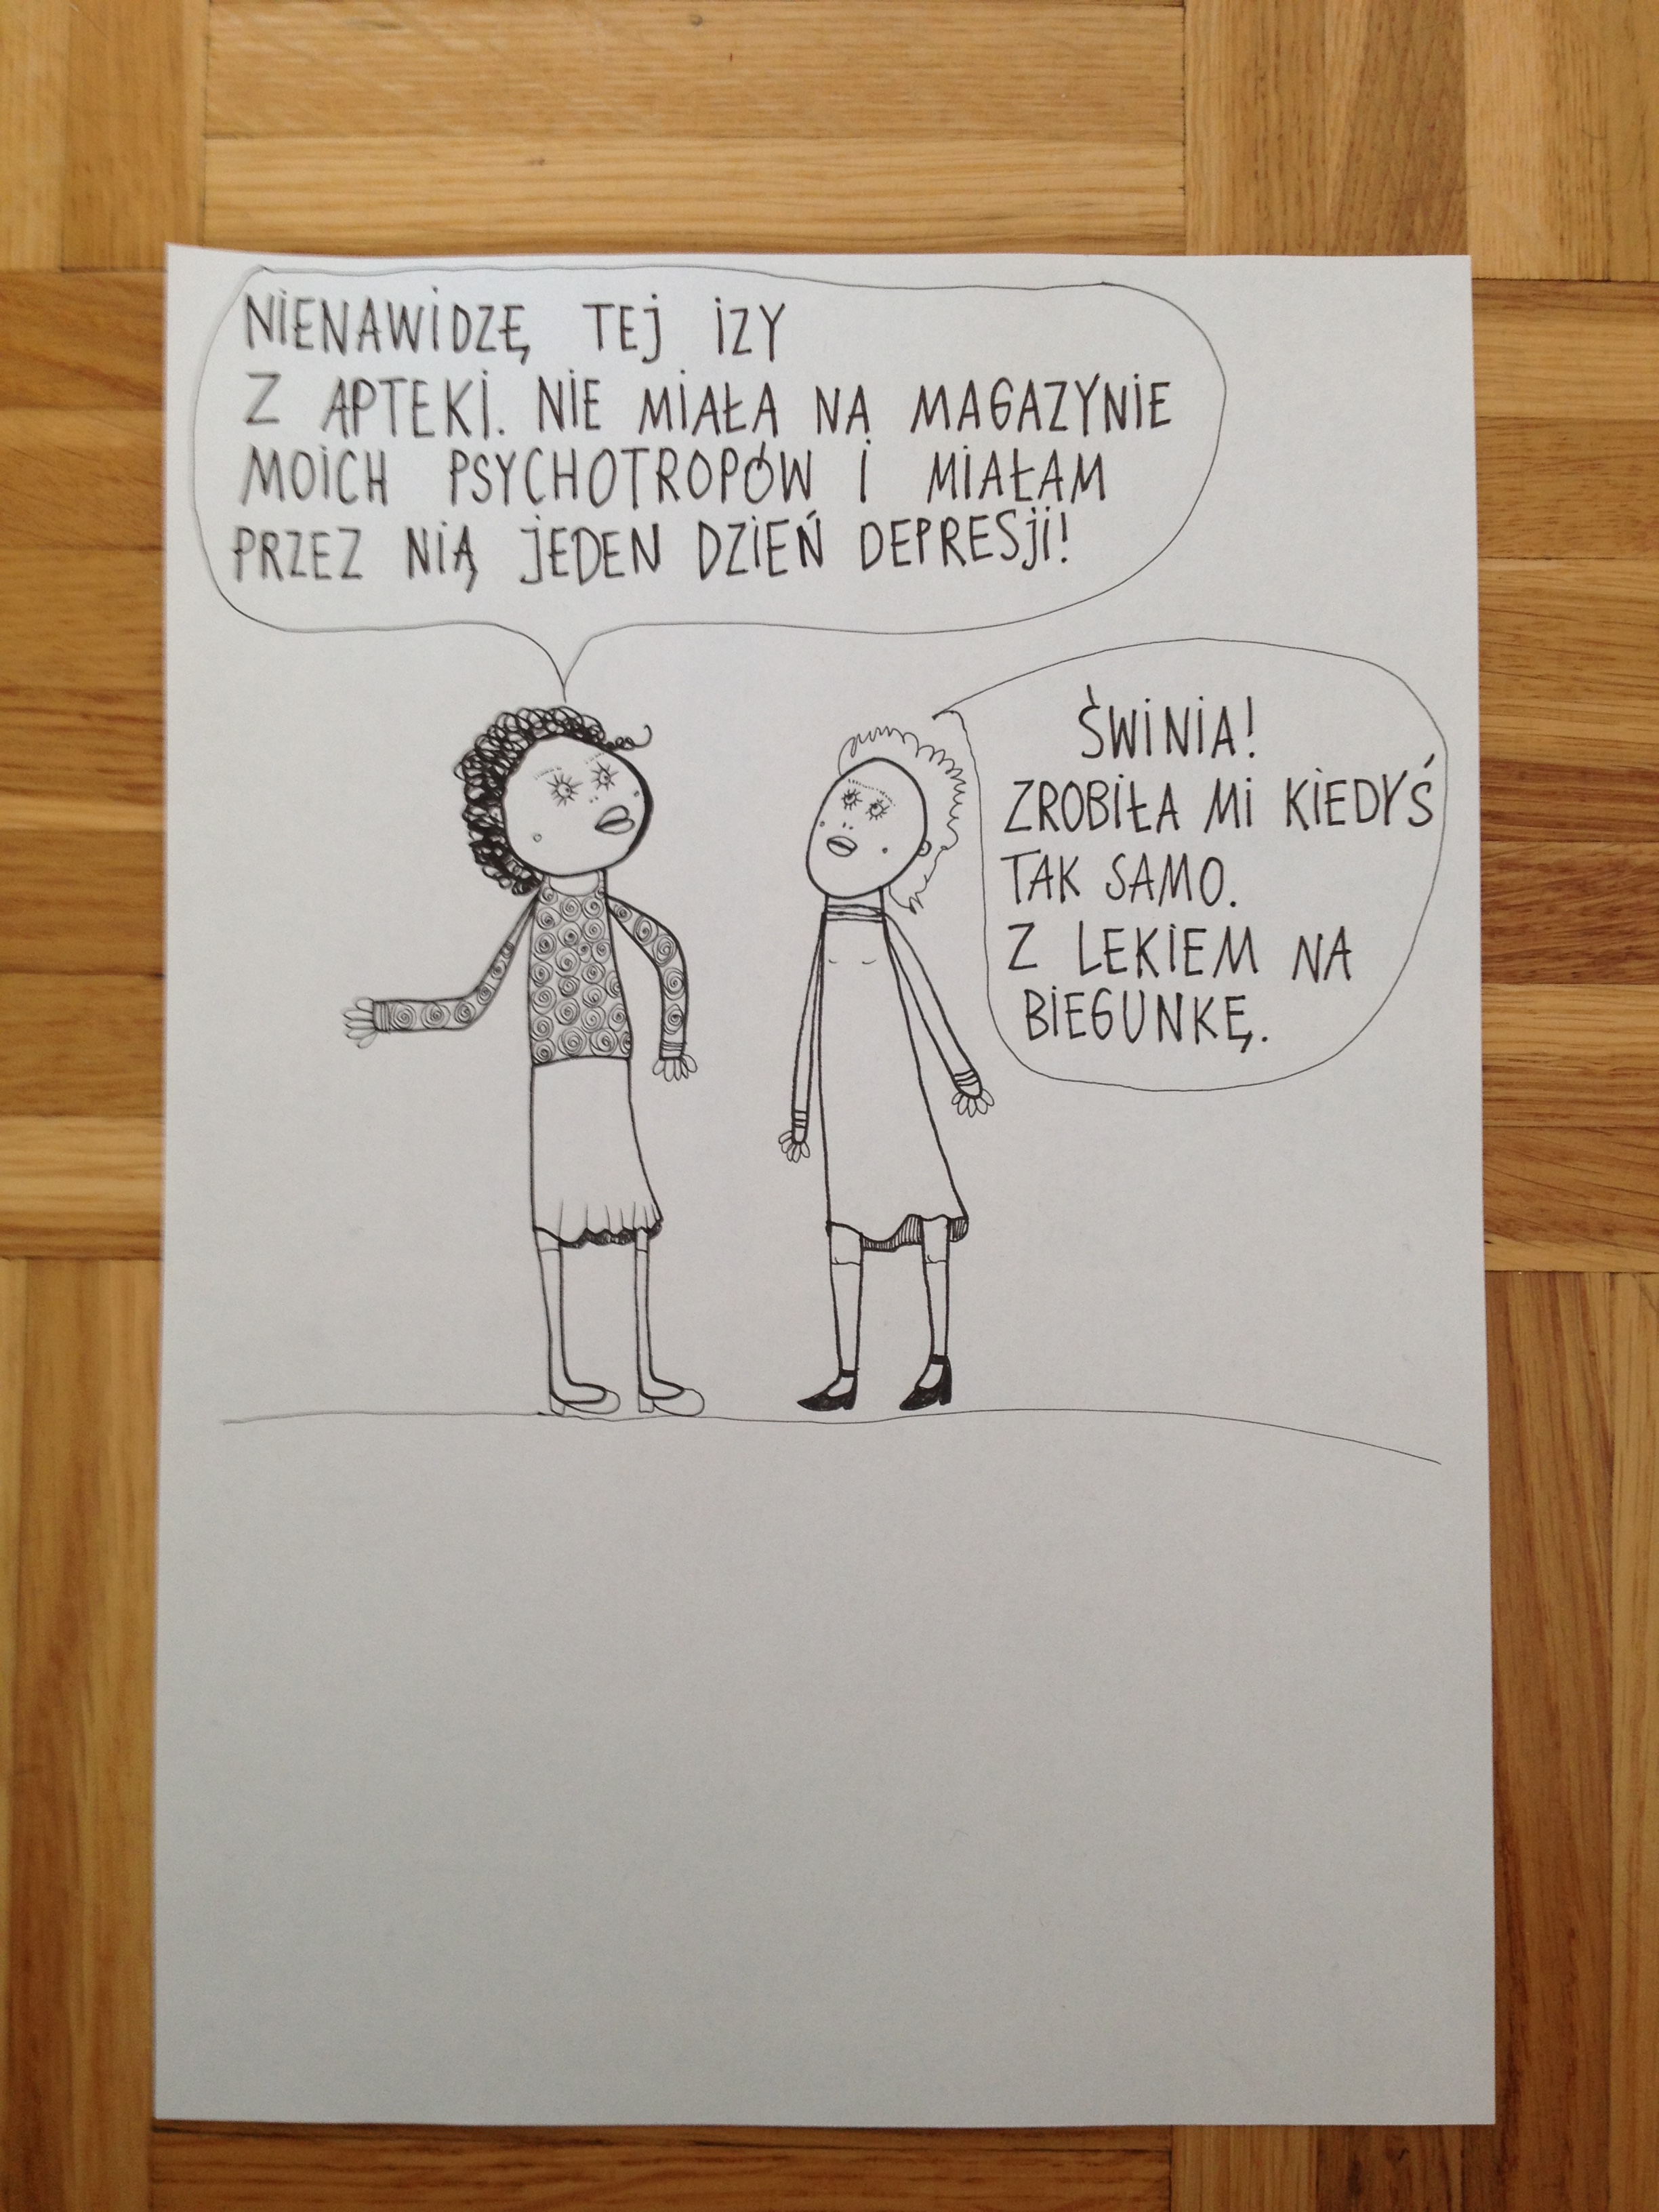 NIENAWIDZĘ TEJ IZY
Z APTEKI. NIE MIAŁA NA MAGAZYNIE
MOICH PSYCHOTROPÓW I MIAŁAM
PRZEZ NIĄ JEDEN DZIEŃ DEPRESJI!
ŚWINIA!
ZROBIŁA MI KIEDYŚ
TAK SAMO.
Z LEKIEM NA
BIEGUNKĘ.